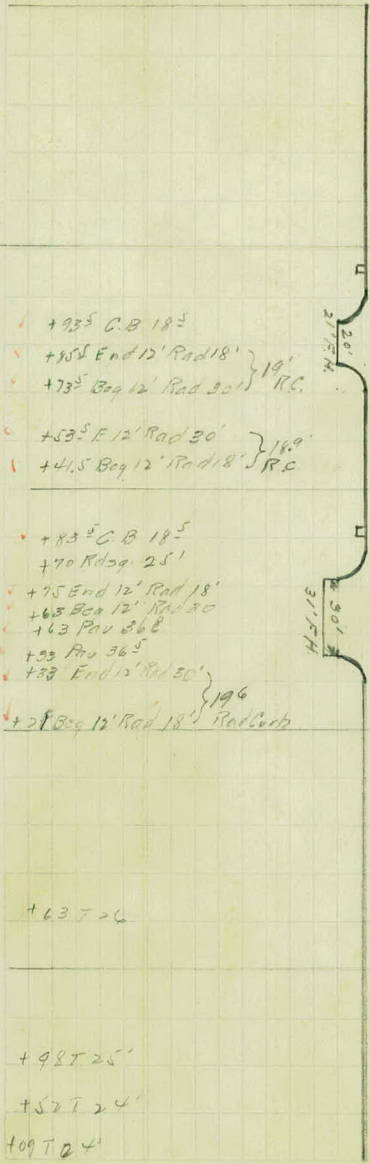 +93⁵ C.B 18⁵
+85⁵ End 12' Rad 18'
+73⁵ Beg 12' Rad 30' } 19' R.C.
20'
21' F.H.
+53⁵ E 12' Rad 30'
+41.5 Beg 12' Rad 18' } 18.9' R.C
+83⁵ C.B 18⁵
+70 Rdsg. 25'
+75 End 12' Rad 18'
+63 Beg 12' Rad 30
+63 Pav 36⁸
+33 Pav 36⁵
+33 End 12' Rad 30'
+21 Beg 12' Rad 18' } 19⁶ Rad Curb
30'
31' F.H
+63 T 26
+98 T 25'
+52 T 24'
+09 T 24'